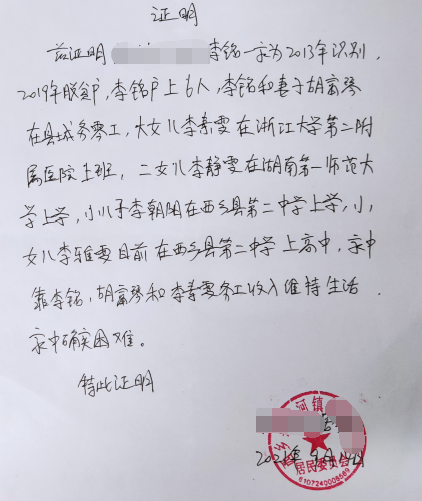 证明
兹证明李铭一家为2013年识别，
2019年脱贫户，李铭户上6人，李铭和妻子胡富琴
在县城务零工，大女儿李素雯在浙江大学第二附
属医院上班，二女儿李静雯在湖南第一师范大
学上学，小儿子李朝阳在西乡县第二中学上学，小
女儿李雅雯目前在西乡县第二中学上高中，家中
靠李铭，胡富琴和李素雯务工收入维持生活．
家中确实困难。
特此证明
河镇
居民委员会
2021年9月
6107240008689